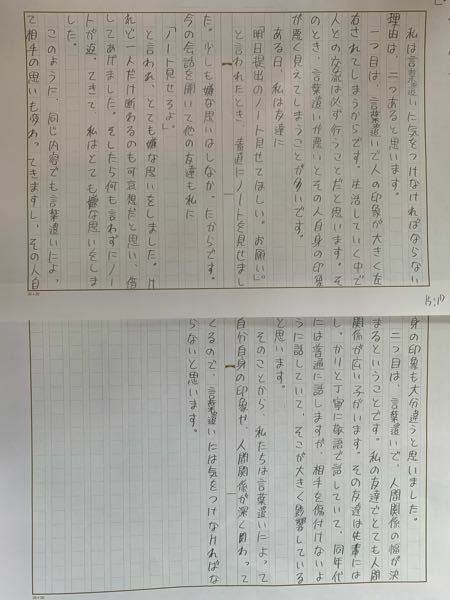 私は言葉遣いに気をつけなければならない
理由は、二つあると思います。
一つ目は、言葉遣いで人の印象が大きく左
右されてしまうからです。生活していく中で
人との交流は必ず行うことだと思います。そ
のとき、言葉遣いが悪いとその人自身の印象
が悪く見えてしまうことが多いです。
ある日、私は友達に
「明日提出のノート見せてほしい。お願い。」
と言われたとき、普通にノートを見せまし
た。少しも嫌な思いはしなかったからです。
今の会話を聞いて他の友達も私に
「ノート見せろよ」
と言われ、とても嫌な思いをしました。け
れど一人だけ断わるのも可哀想だと思い、借
してあげました。そしたら何も言わずにノー
トが返ってきて、私はとても嫌な思いをしま
した。
このように、同じ内容でも言葉遣いによっ
て相手の思いも変わってきますし、その人自
身の印象も大分違うと思いました。
二つ目は、言葉遣いで、人間関係の幅が決
まるということです。私の友達でとても人間
関係が広い子がいます。その友達は先輩には
しっかりと丁寧に敬語で話していて、同年代
には普通に話しますが、相手を傷付けないよ
うに話していて、そこが大きく影響している
と思います。
そのことから、私たちは言葉遣いによって
自分自身の印象や、人間関係が深く関わって
くるので、言葉遣いには気をつけなければな
らないと思います。